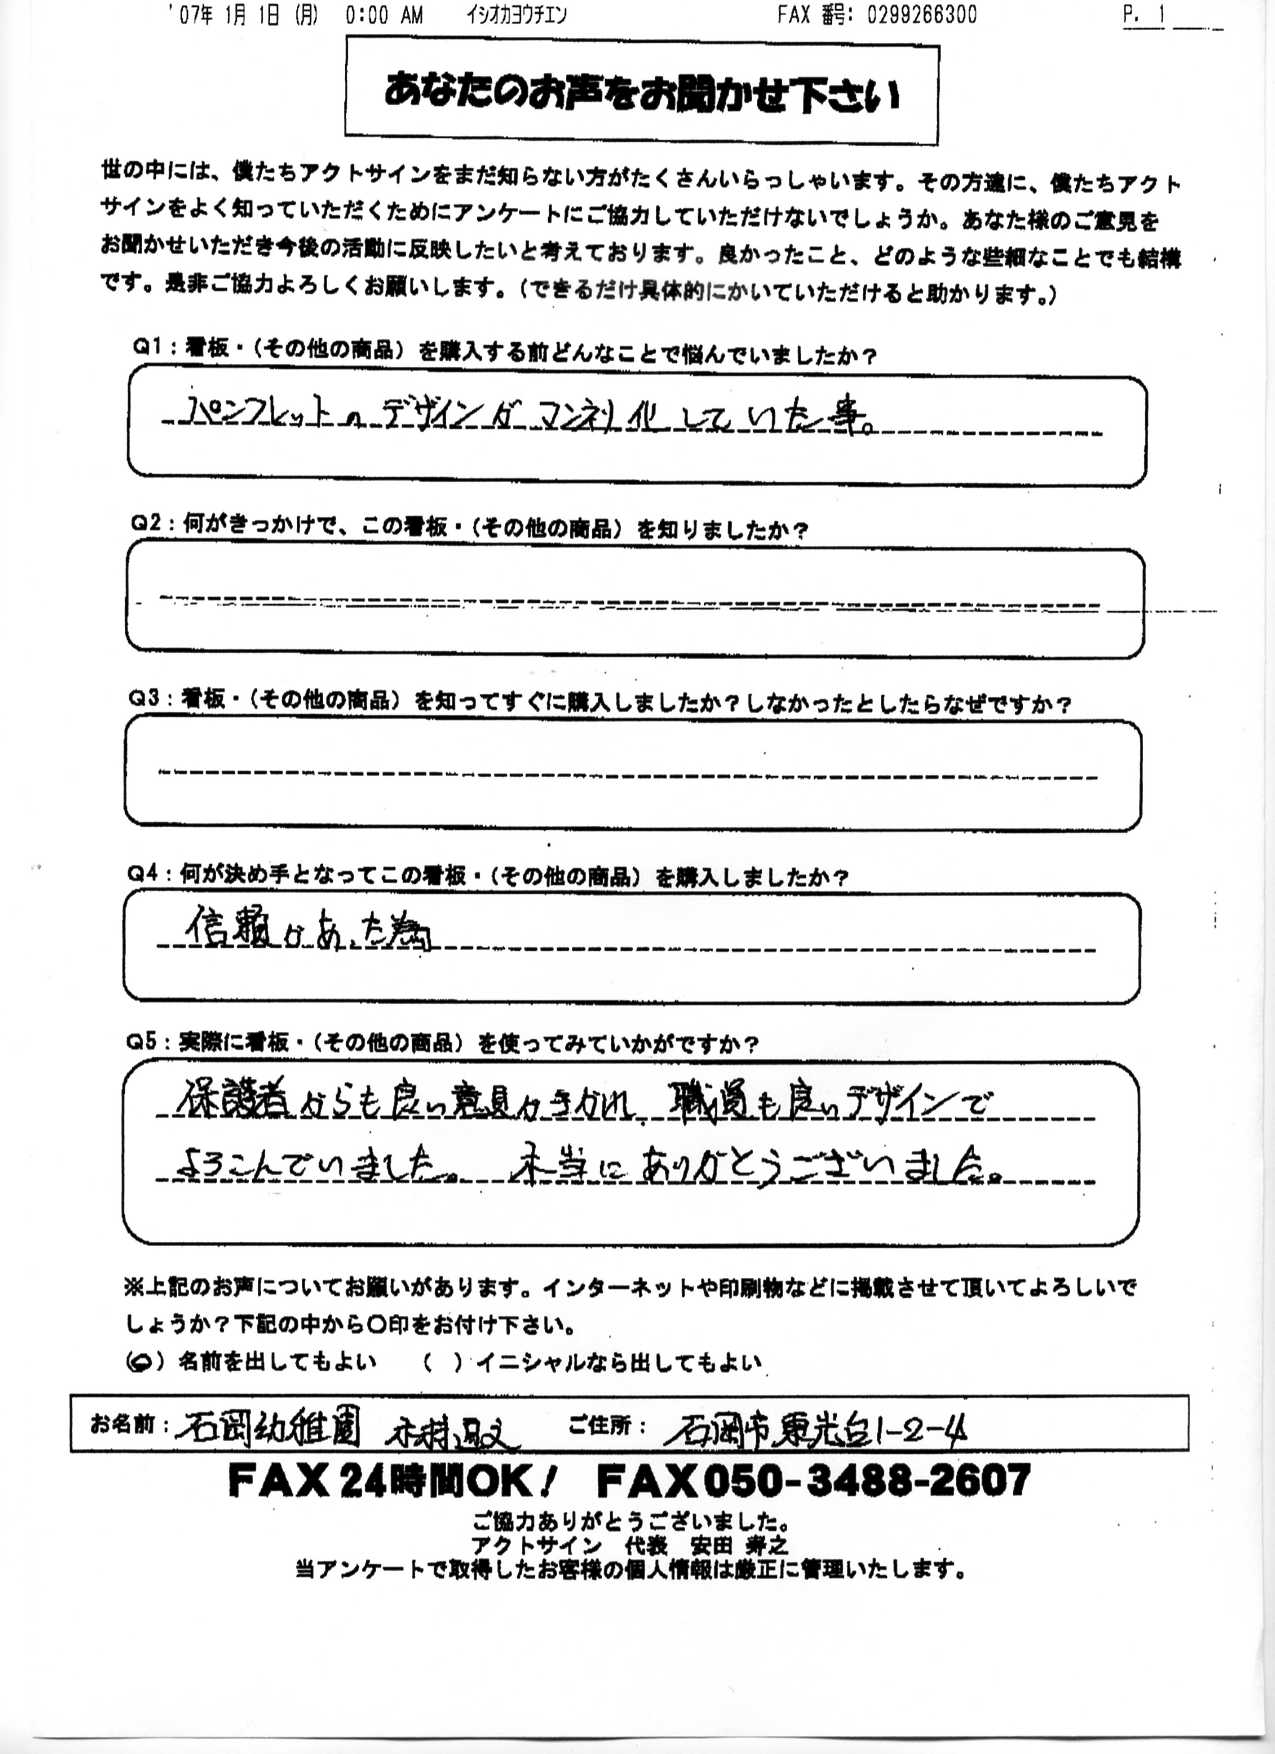 '07年 1月 1日 (月) 0:00 AM イシオカヨウチエン FAX 番号: 0299266300 P. 1
あなたのお声をお聞かせ下さい
世の中には、僕たちアクトサインをまだ知らない方がたくさんいらっしゃいます。その方達に、僕たちアクト
サインをよく知っていただくためにアンケートにご協力していただけないでしょうか。あなた様のご意見を
お聞かせいただき今後の活動に反映したいと考えております。良かったこと、どのような些細なことでも結構
です。是非ご協力よろしくお願いします。（できるだけ具体的にかいていただけると助かります。）
Q1：看板・（その他の商品）を購入する前どんなことで悩んでいましたか？
パンフレットのデザインがマンネリ化していた事。
Q2：何がきっかけで、この看板・（その他の商品）を知りましたか？
Q3：看板・（その他の商品）を知ってすぐに購入しましたか？しなかったとしたらなぜですか？
Q4：何が決め手となってこの看板・（その他の商品）を購入しましたか？
信頼があった為
Q5：実際に看板・（その他の商品）を使ってみていかがですか？
保護者からも良い意見がきかれ、職員も良いデザインで
よろこんでいました。 本当にありがとうございました。
※上記のお声についてお願いがあります。インターネットや印刷物などに掲載させて頂いてよろしいで
しょうか？下記の中から〇印をお付け下さい。
（〇）名前を出してもよい （ ）イニシャルなら出してもよい
お名前：石岡幼稚園 ご住所：石岡市東光台1-2-4
FAX 24時間OK！ FAX 050-3488-2607
ご協力ありがとうございました。
アクトサイン 代表 安田 寿之
当アンケートで取得したお客様の個人情報は厳正に管理いたします。